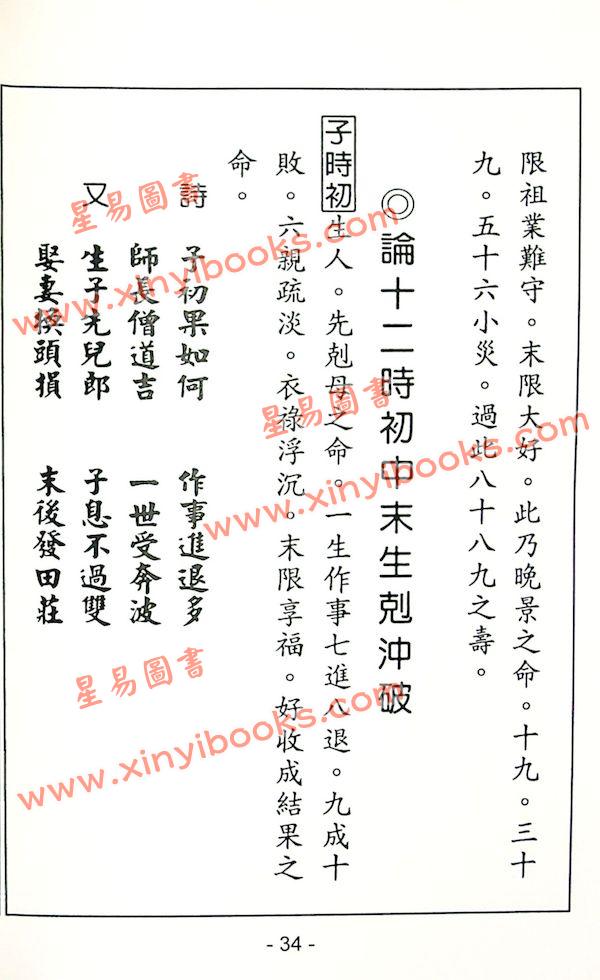 限祖業難守。末限大好。此乃晚景之命。十九。三十
九。五十六小災。過此八十八九之壽。
◎論十二時初中末生剋沖破
子時初生人。先剋母之命。一生作事七進八退。九成十
敗。六親疏淡。衣祿浮沉。末限享福。好收成結果之
命。
詩 子初果如何 作事進退多
師長僧道吉 一世受奔波
又 生子先兒郎 子息不過雙
娶妻換頭損 末後發田莊
- 34 -
星易圖書
www.xinyibooks.com
星易圖書
www.xinyibooks.com
星易圖書
www.xinyibooks.com